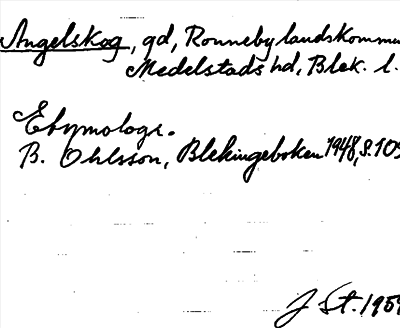 Angelskog, gd, Ronneby landskommu
Medelstads hd, Blek. l.
Etymologi.
B. Ohlsson, Blekingeboken 1948, s. 109
J St. 1959